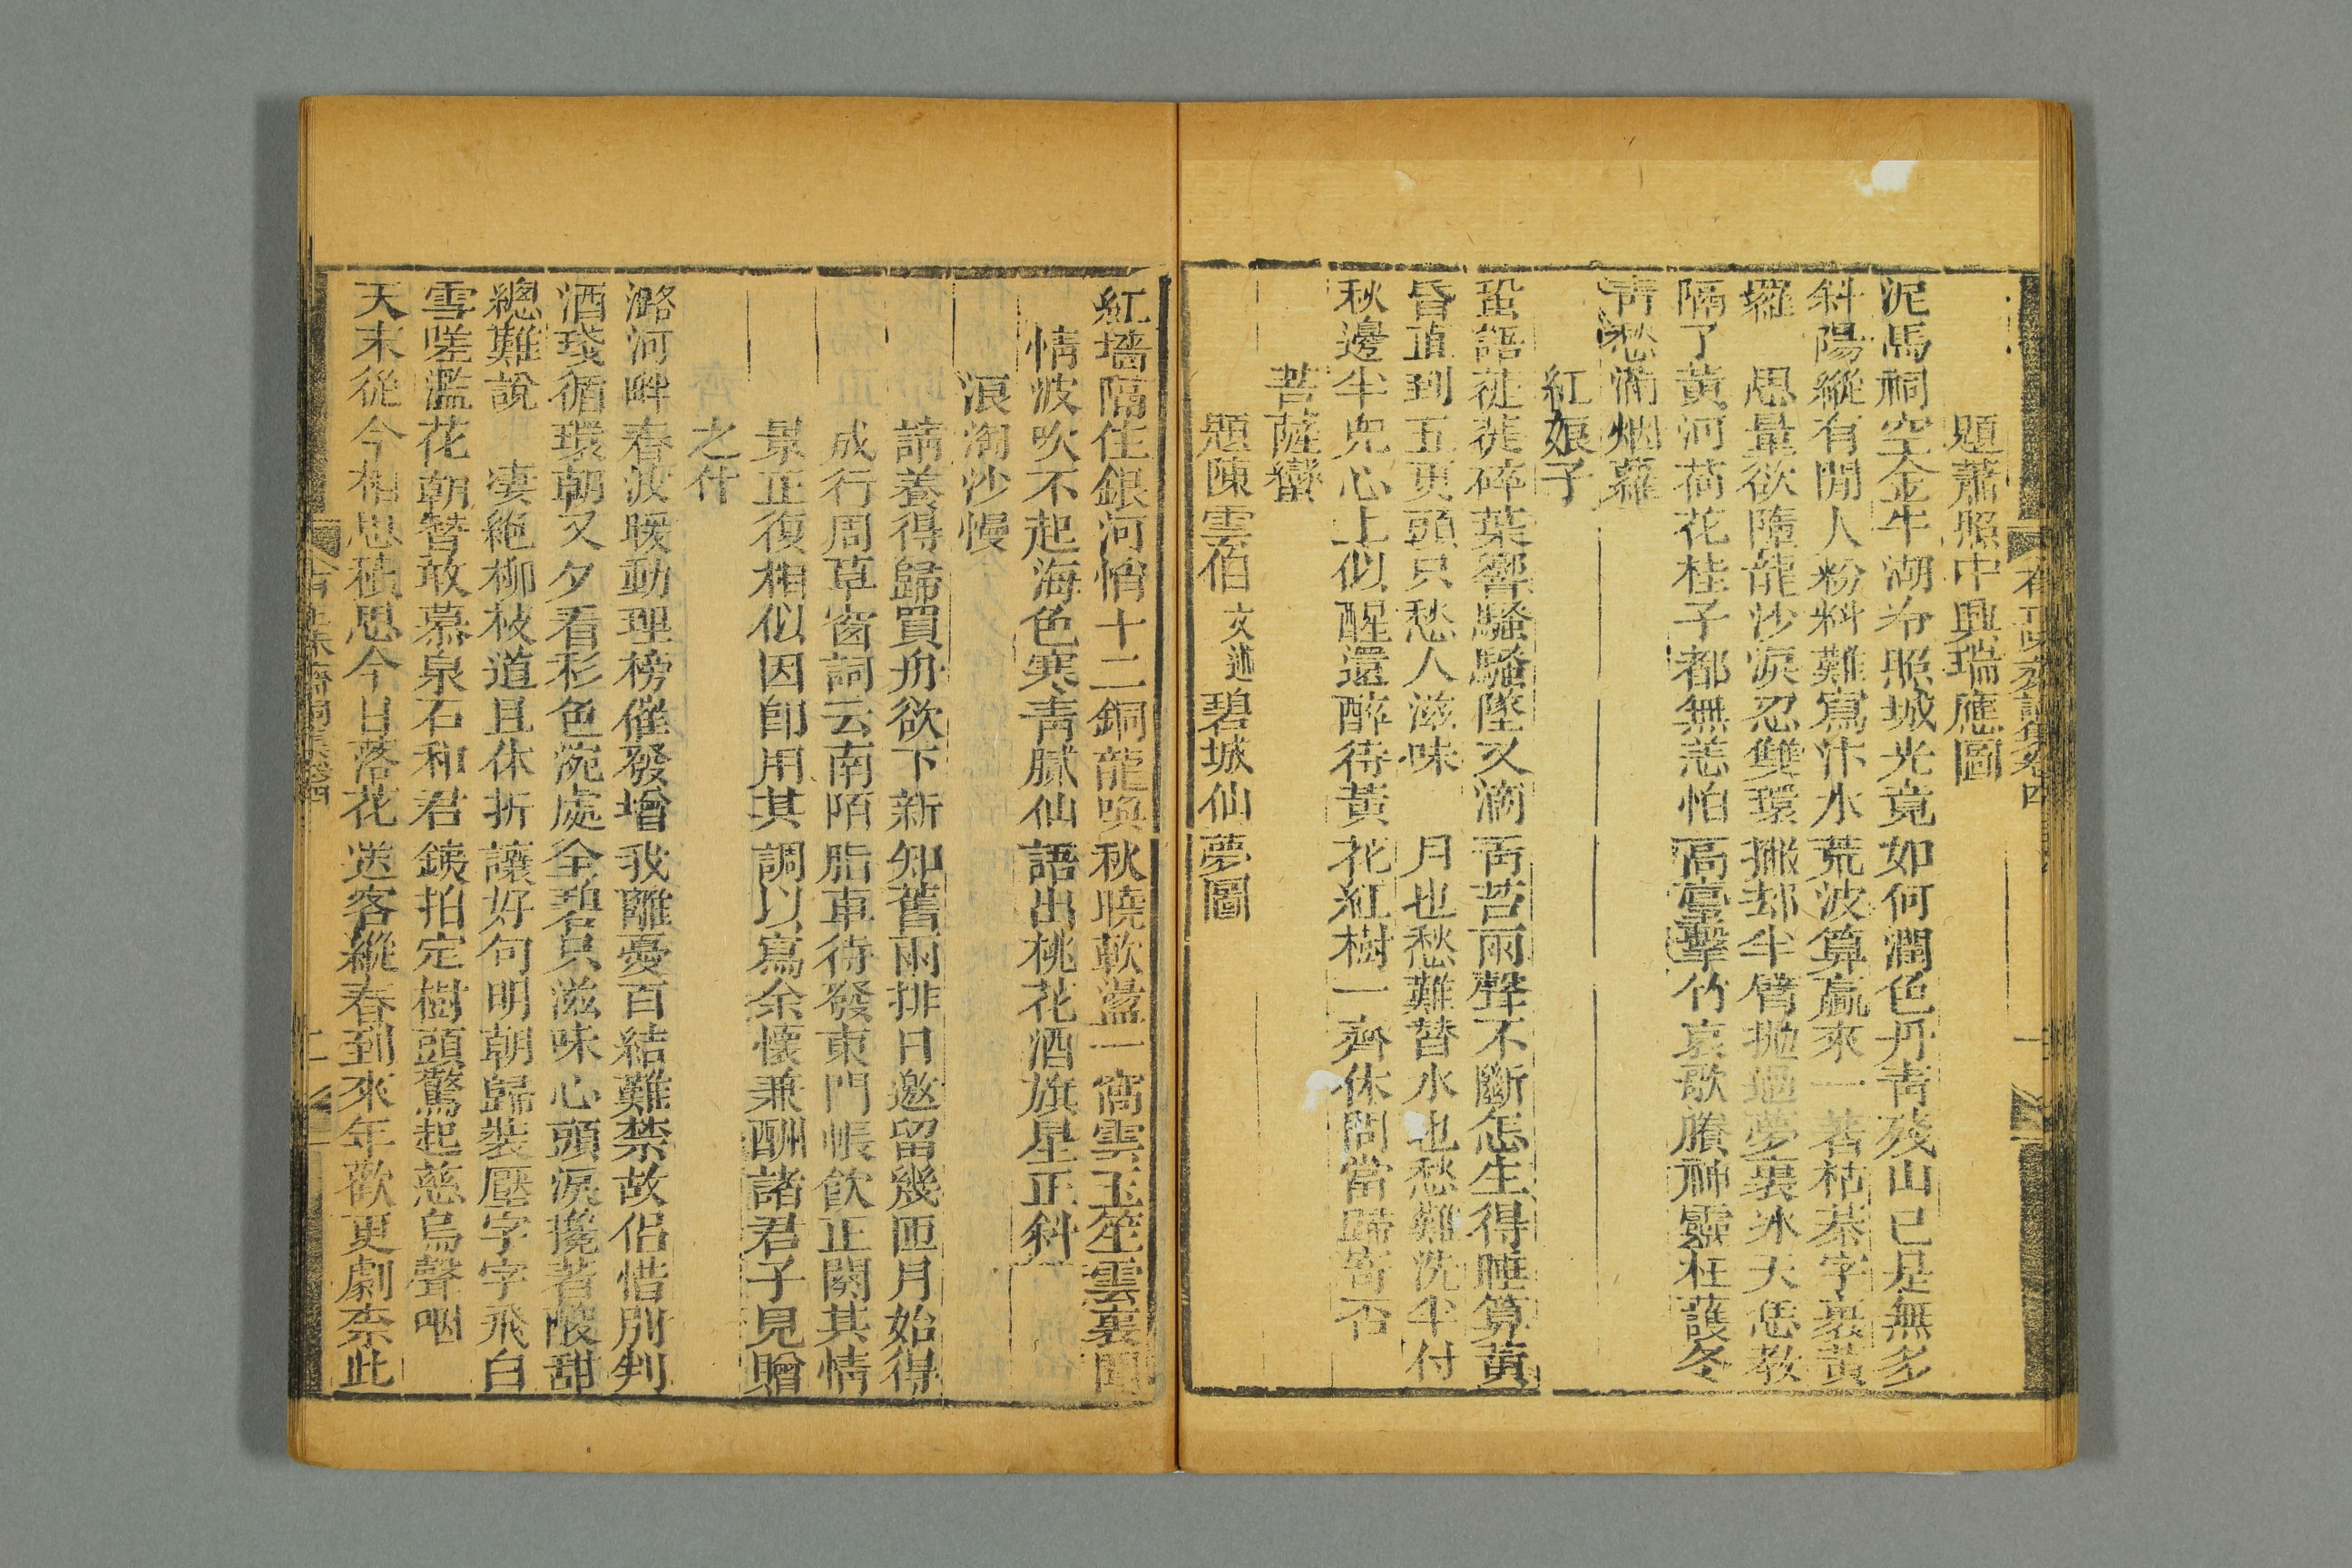 題蕭照中興瑞應圖
泥馬祠空金牛湖冷照城光竟如何潤色丹青殘山已是無多
斜陽縱有閒人粉料難寫汴水荒波算贏來一著枯棊字裹黃
羅　思量欲墮龍沙淚忍雙環擲却半臂拋過夢裏冰天恁教
隔了黃河荷花桂子都無恙怕高臺擊竹哀歌賸神靈枉護冬
靑愁滿烟蘿
紅娘子
蛩語徒徒碎葉響騷騷墜又滴靑苔雨聲不斷怎生得睡算黃
昏直到五更頭只愁人滋味　月也愁難替水也愁難洗半付
秋邊半兜心上似醒還醉待黃花紅樹一齊休問當歸寄否
菩薩蠻
題陳雲伯文述碧城仙夢圖
紅墻隔住銀河悄十二銅龍喚秋曉軟盪一窩雲玉笙雲裏聞
情波吹不起海色寒靑膩仙語出桃花酒旗星正斜
浪淘沙慢
請養得歸買舟欲下新知舊雨排日邀留幾匝月始得
成行周草窗詞云南陌脂車待發東門帳飮正闋其情
景正復相似因卽用其調以寫余懷兼酬諸君子見贈
之什
潞河畔春波暖動理榜催發增我離憂百結難禁故侶惜別判
酒琖循環朝又夕看彩色涴處全碧只滋味心頭淚攙著酸甜
總難說　凄絶柳枝道且休折讓好句明朝歸裝壓字字飛白
雪嗟濫花朝替敢慕泉石和君銕拍定樹頭驚起慈烏聲咽
天末從今相思積思今日落花送客縱春到來年歡更劇柰此